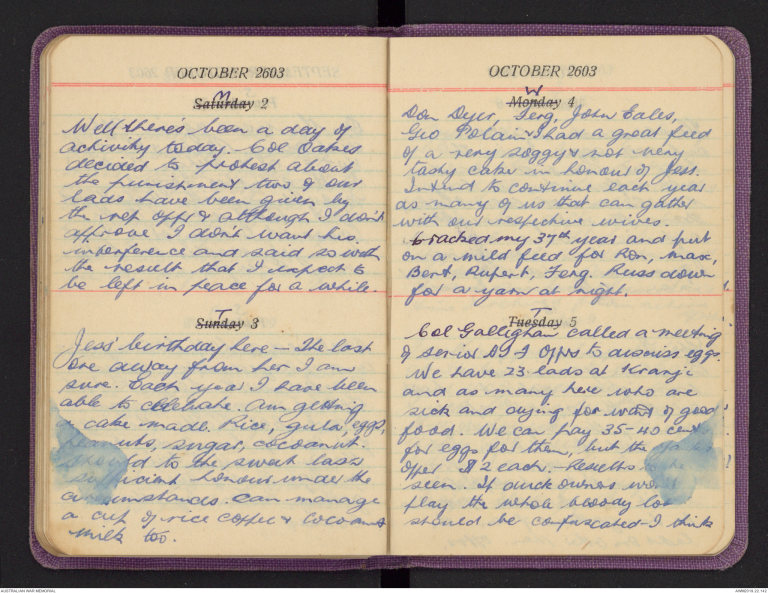 OCTOBER 2603
M
Saturday 2
Well there's been a day of
activity today. Col Oakes
decided to protest about
the punishment two of our
lads have been given by
the nip offr & although I don't
approve I don't want his
interference and said so with
the result that I expect to
be left in peace for a while.
T
Sunday 3
Jess' birthday here – The last
one away from her I am
sure. Each year I have been
able to celebrate. Am getting
a cake made. Rice, gula, eggs,
nuts, sugar, cocoanut.
to the sweet lass
sufficient honour under the
circumstances. Can manage
a cup of rice coffee & cocoanut
milk too.
OCTOBER 2603
W
Monday 4
Don Dyer, Ferg, John Eales,
Geo Polain & I had a great feed
of a very soggy & not very
tasty cake in honour of Jess.
Intend to continue each year
as many of us that can gather
with our respective wives.
Cracked my 37th year and put
on a mild feed for Ron, Max,
Bert, Rupert, Ferg. Russ down
for a yarn at night.
T
Tuesday 5
Col Gallighan called a meeting
of senior AIF Offrs to dismiss eggs.
We have 23 lads at Kranji
and as many here who are
sick and dying for want of good
food. We can pay 35-40 cents
for eggs for them, but the
offer $2 each. – Results to be
seen. If duck owners won't
play the whole bloody lot
should be confiscated – I think
AUSTRALIAN WAR MEMORIAL
AWM2019.22.142